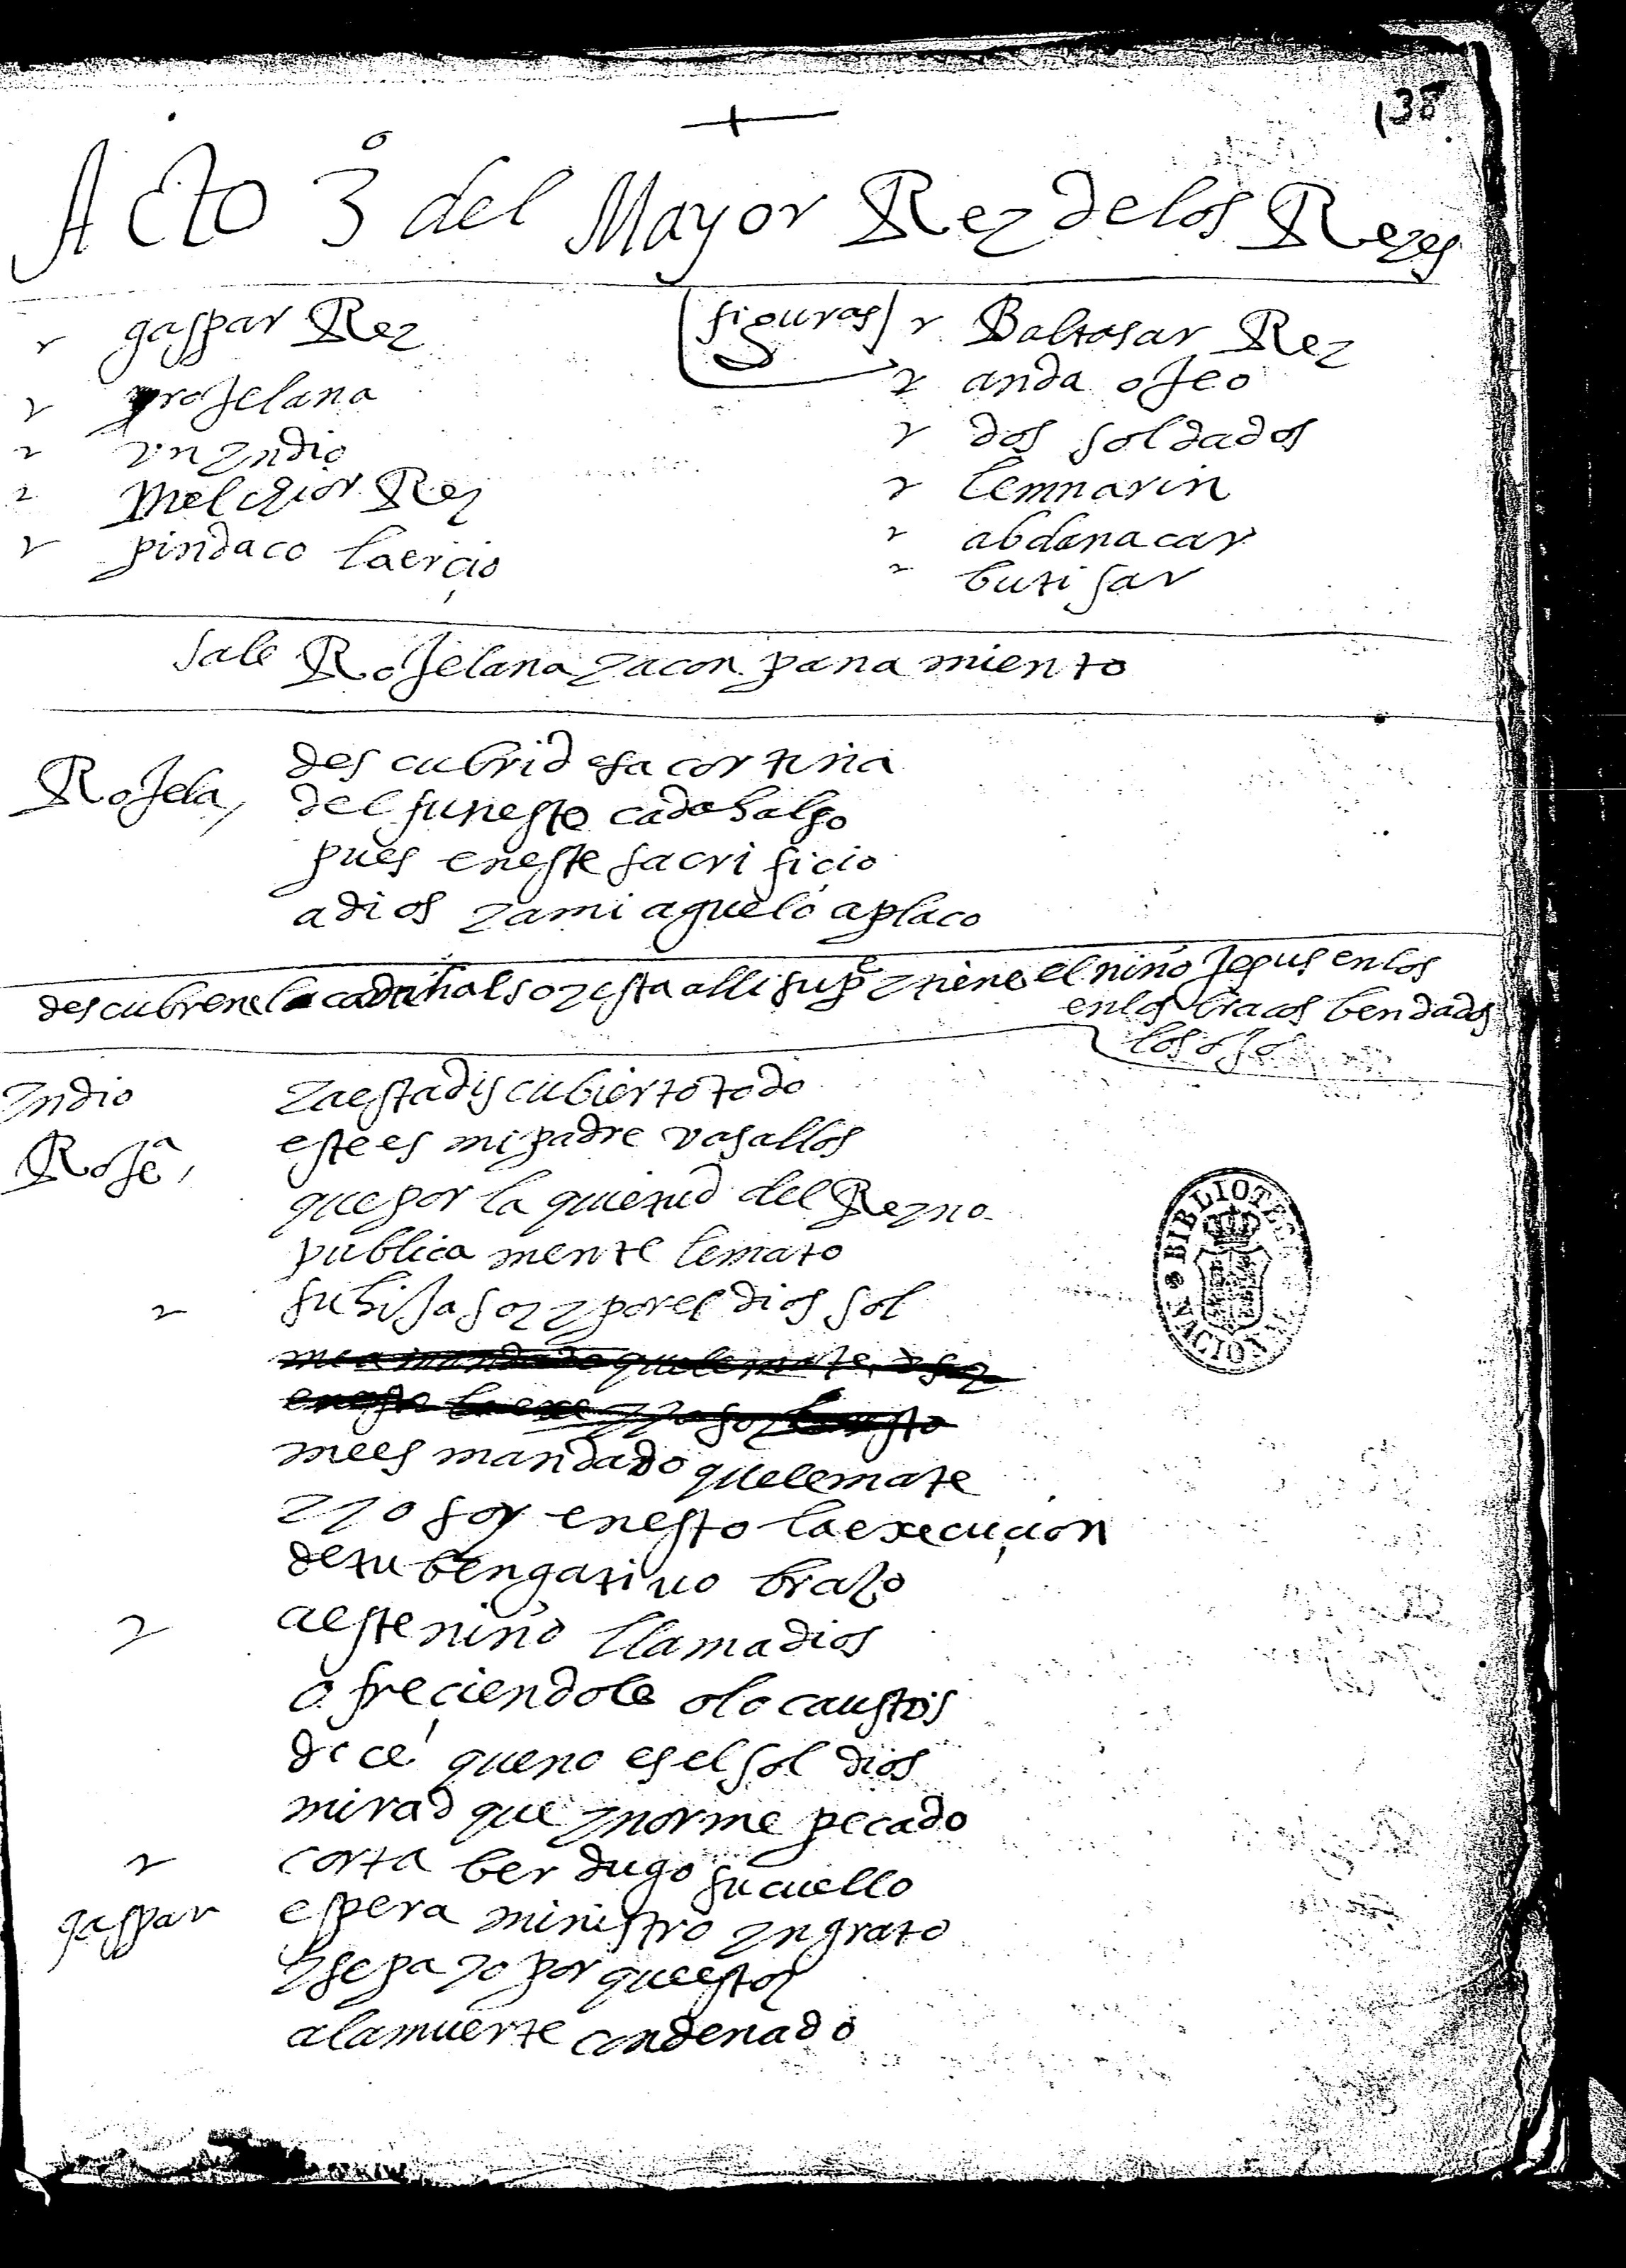 138
Acto 3º del Mayor Rey de los Reyes
figuras
gaspar Rey
rrojelana
vn yndio
Melchior Rey
pindaco laercio
Baltasar Rey
anda ojeo
dos soldados
lemnarin
abdanacar
butisar
sale Rojelana y acon panamiento
Rojela, descubrid esa cortina
del funesto cadahalso
pues en este sacrificio
a dios y a mi aguelo aplaco
descubren el cadahalso y esta alli su pe y tiene el niño Jesus en los
en los bracos bendados
los ojos
yndio ya esta discubierto todo
Rojeª, este es mi padre vasallos
que por la quietud del Reyno
publica mente le mato
su hija soy y por el dios sol
me a mandado que le mate
me es mandado que le mate
y yo soy en esto la execuçion
de tu bengatiuo brazo
a este niño llama dios
ofreçiendole olocaustos
dice que no es el sol dios
mirad que ynorme pecado
corta berdugo su cuello
gaspar espera ministro yngrato
y sepa yo por que estoy
a la muerte condenado
BIBLIOTECA NACIONAL